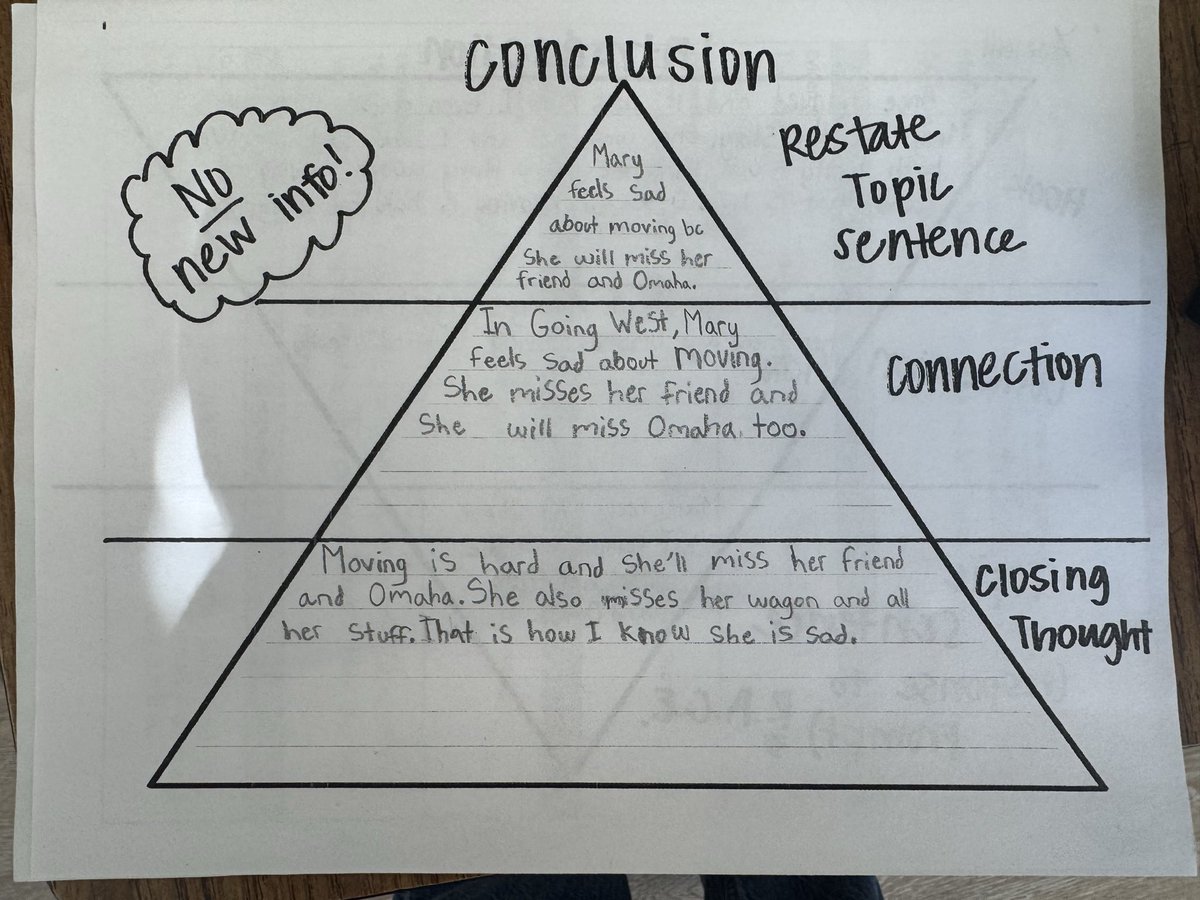 Conclusion
No
new info!
Restate
Topic
sentence
Mary
feels sad
about moving bc
She will miss her
friend and Omaha.
Connection
In Going West, Mary
feels sad about moving.
She misses her friend and
She will miss Omaha too.
Closing
Thought
Moving is hard and she'll miss her friend
and Omaha. She also misses her wagon and all
her stuff. That is how I know she is sad.